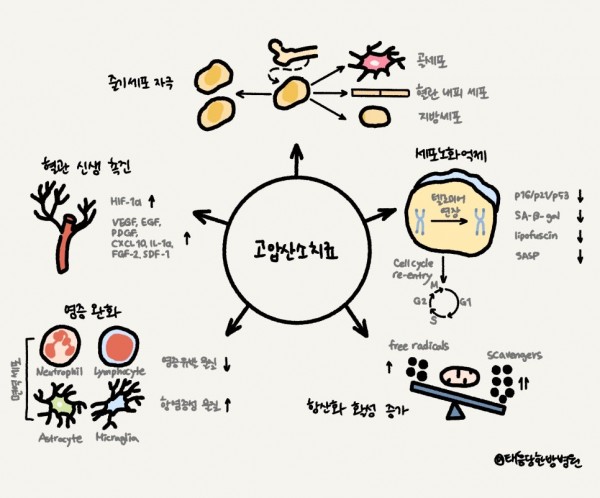 줄기세포 자극
골세포
혈관 내피 세포
지방세포
혈관 신생 촉진
HIF-1α ↑
VEGF, EGF,
PDGF,
CXCL10, IL-1α, ↑
FGF-2, SDF-1
세포노화억제
텔로미어
연장
p16/p21/p53 ↓
SA-β-gal ↓
lipofuscin ↓
SASP ↓
Cell cycle
re-entry
M
G2
G1
S
고압산소치료
염증 완화
면역 세포
Neutrophil
Lymphocyte
Astrocyte
Microglia
염증유발 물질 ↓
항염증성 물질 ↑
free radicals
↑
scavengers
↑↑
항산화 활성 증가
@태응당한방병원